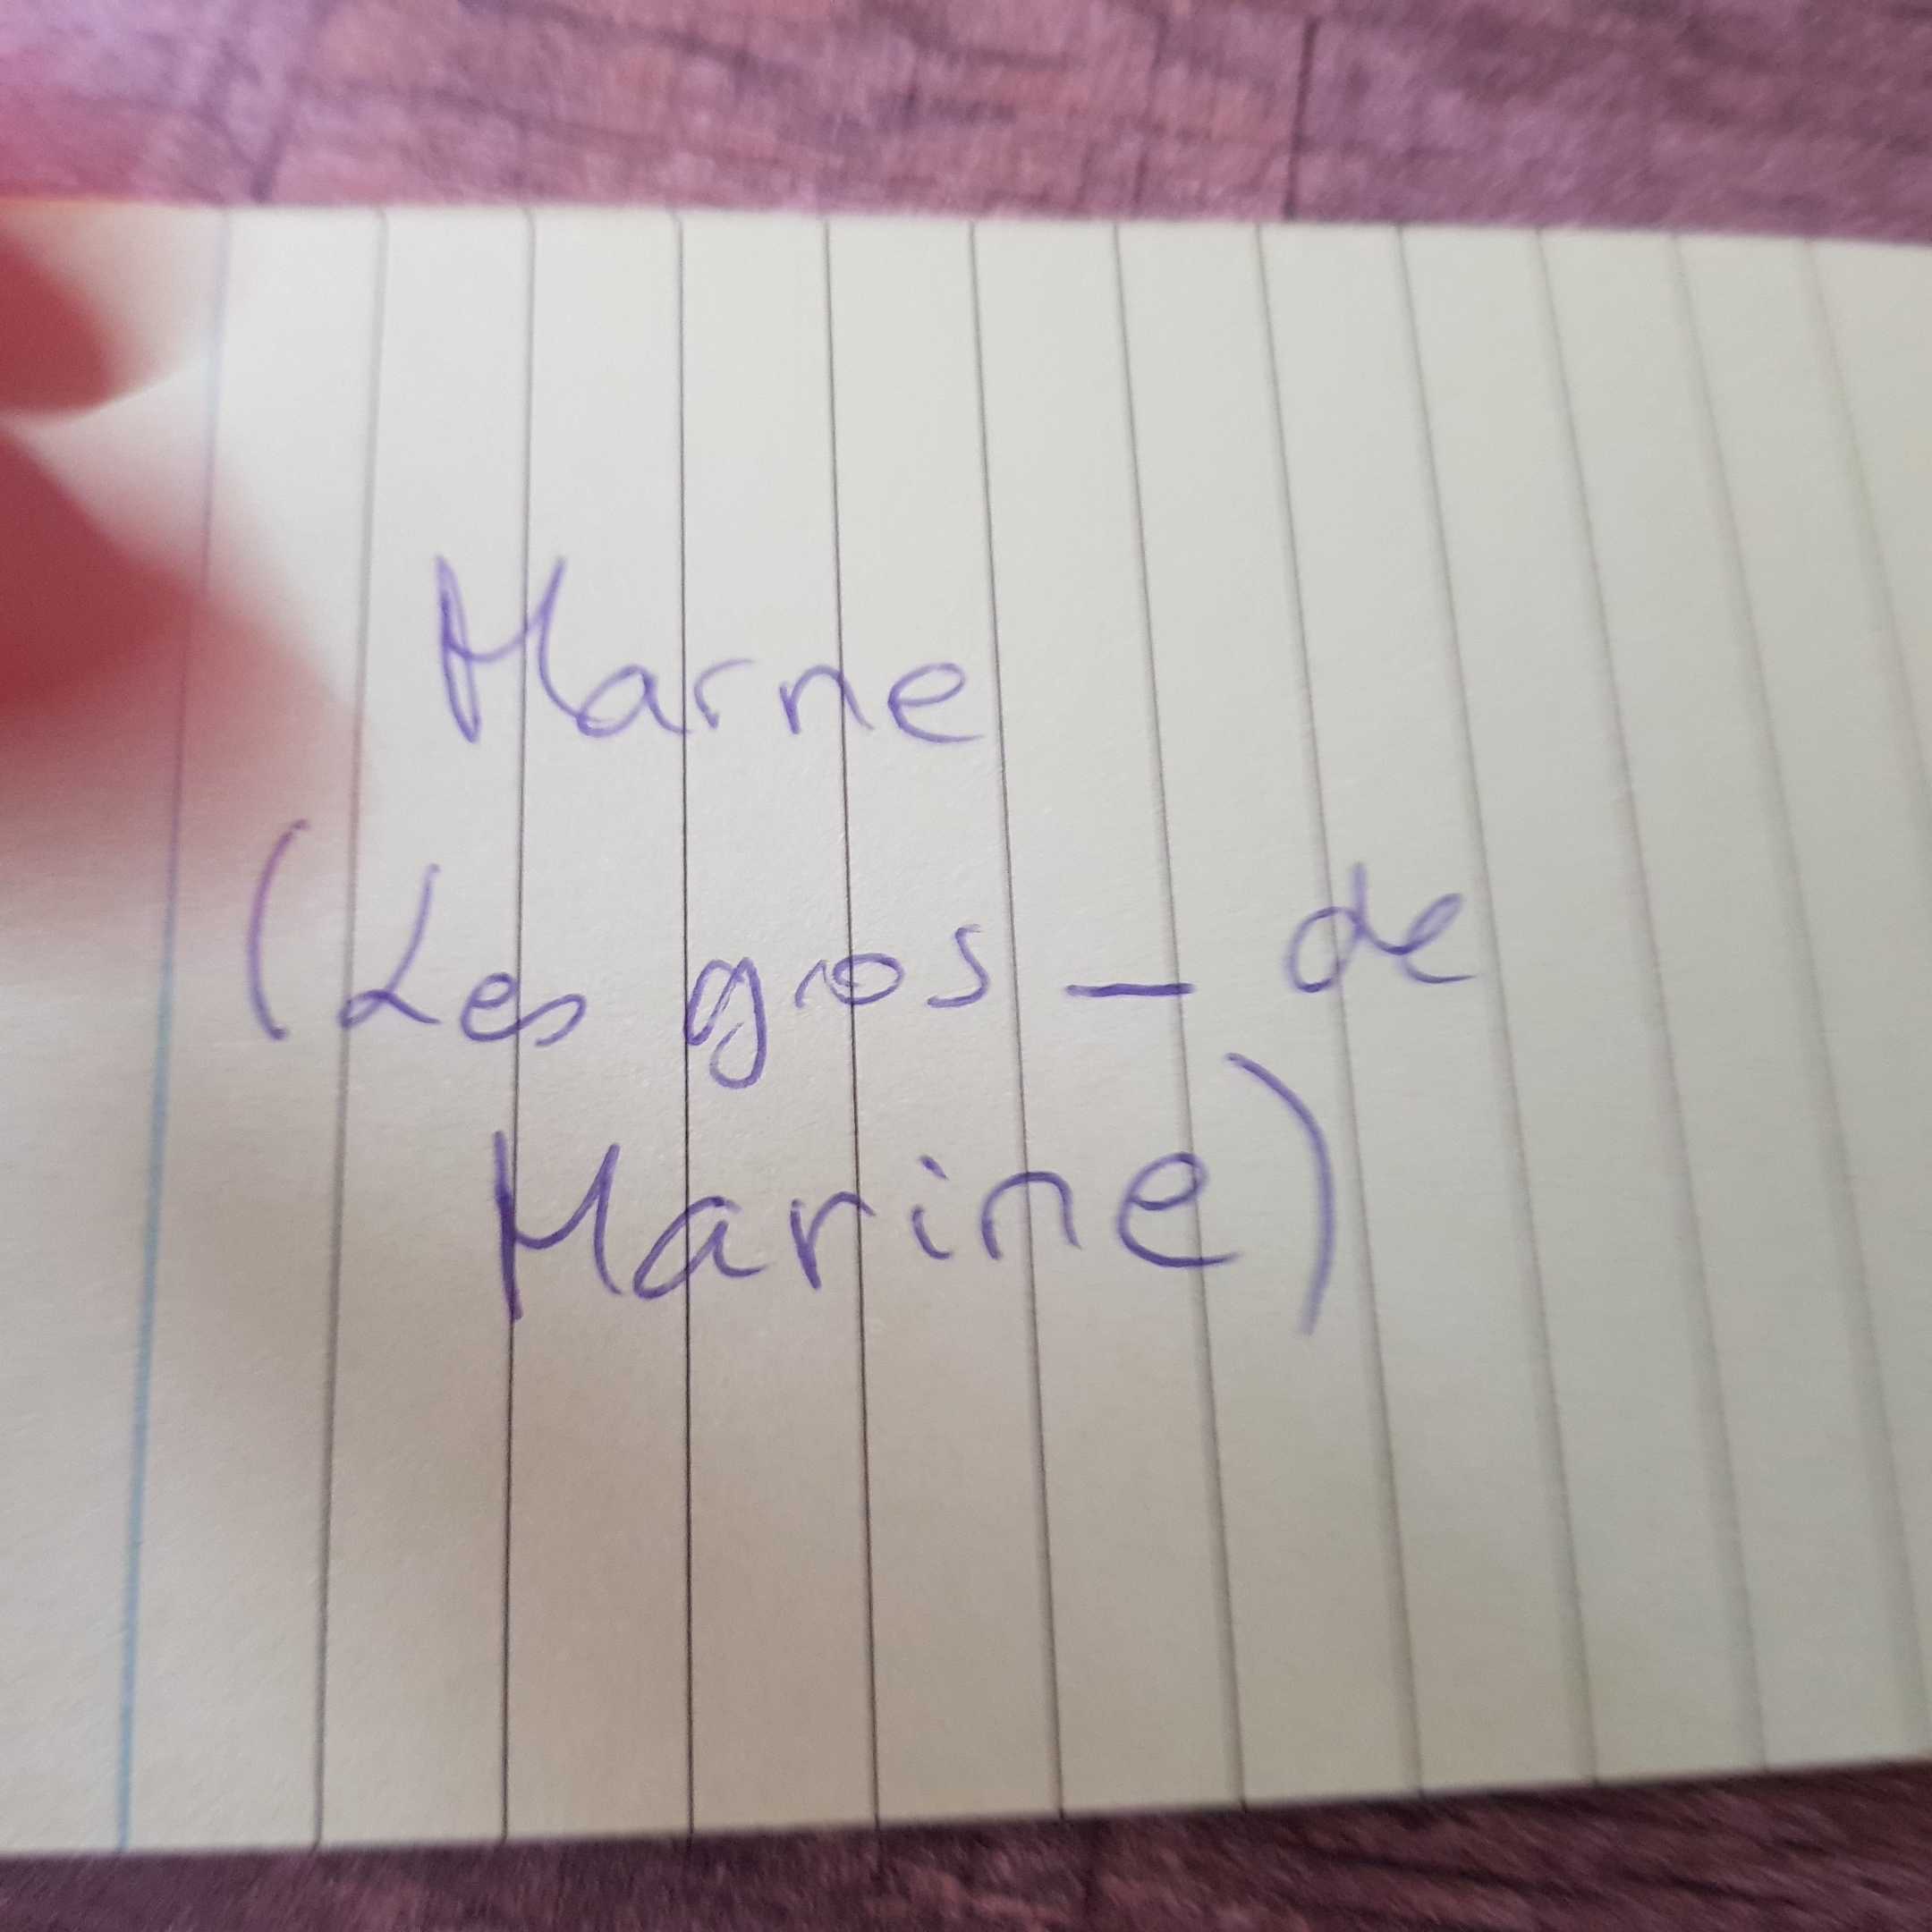 Marne
(Les gros _ de
Marine)